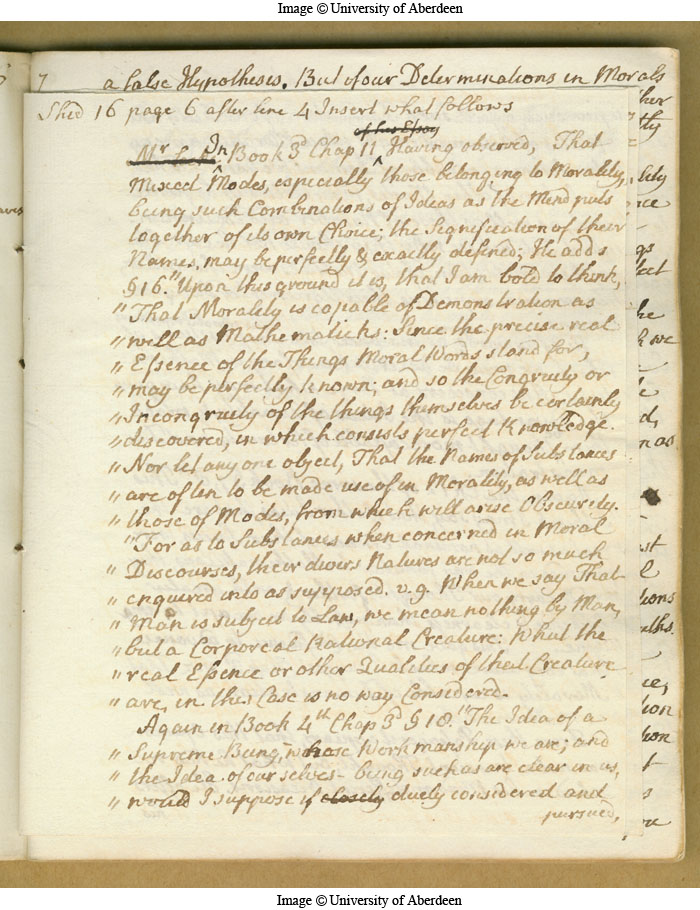 Image © University of Aberdeen
7 a false Hypothesis. But if our Determinations in Morals
Shed 16 page 6 after line 4 Insert what follows
of his Essay
In Book 3d Chap 11 ^ Having observed, That
Mixed Modes, especially those belonging to Morality,
being such Combinations of Ideas as the Mind puts
together of its own Choice; the Signification of their
Names, may be perfectly & exactly defined; He adds
§16. "Upon this ground it is, that I am bold to think,
" That Morality is capable of Demonstration as
" well as Mathematicks: Since the precise real
" Essence of the Things Moral Words stand for,
" may be perfectly known; and so the Congruity or
" Incongruity of the things themselves be certainly
" discovered, in which consists perfect Knowledge.
" Nor let any one object, That the Names of Substances
" are often to be made use of in Morality, as well as
" those of Modes, from which will arise Obscurity.
" For as to Substances when concerned in Moral
" Discourses, their divers Natures are not so much
" enquired into as supposed. v.g. When we say That
" Man is subject to Law, we mean nothing by Man,
" but a Corporeal Rational Creature: What the
" real Essence or other Qualities of that Creature
" are, in this Case is no way Considered.
Again in Book 4th Chap 3d § 18. "The Idea of a
" Supreme Being, whose Workmanship we are; and
" the Idea of our selves - being such as are clear in us,
" would I suppose if closely duely considered and
pursued,
Image © University of Aberdeen